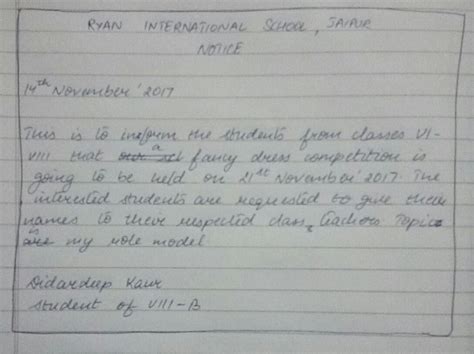 RYAN INTERNATIONAL SCHOOL, JAIPUR
NOTICE
14th November' 2017
This is to inform the students from classes VI-
VIII that a fancy dress competition is
going to be held on 21st November' 2017. The
interested students are requested to give their
names to their respected class teachers Topic
is my role model
Didardeep Kaur
Student of VIII-B